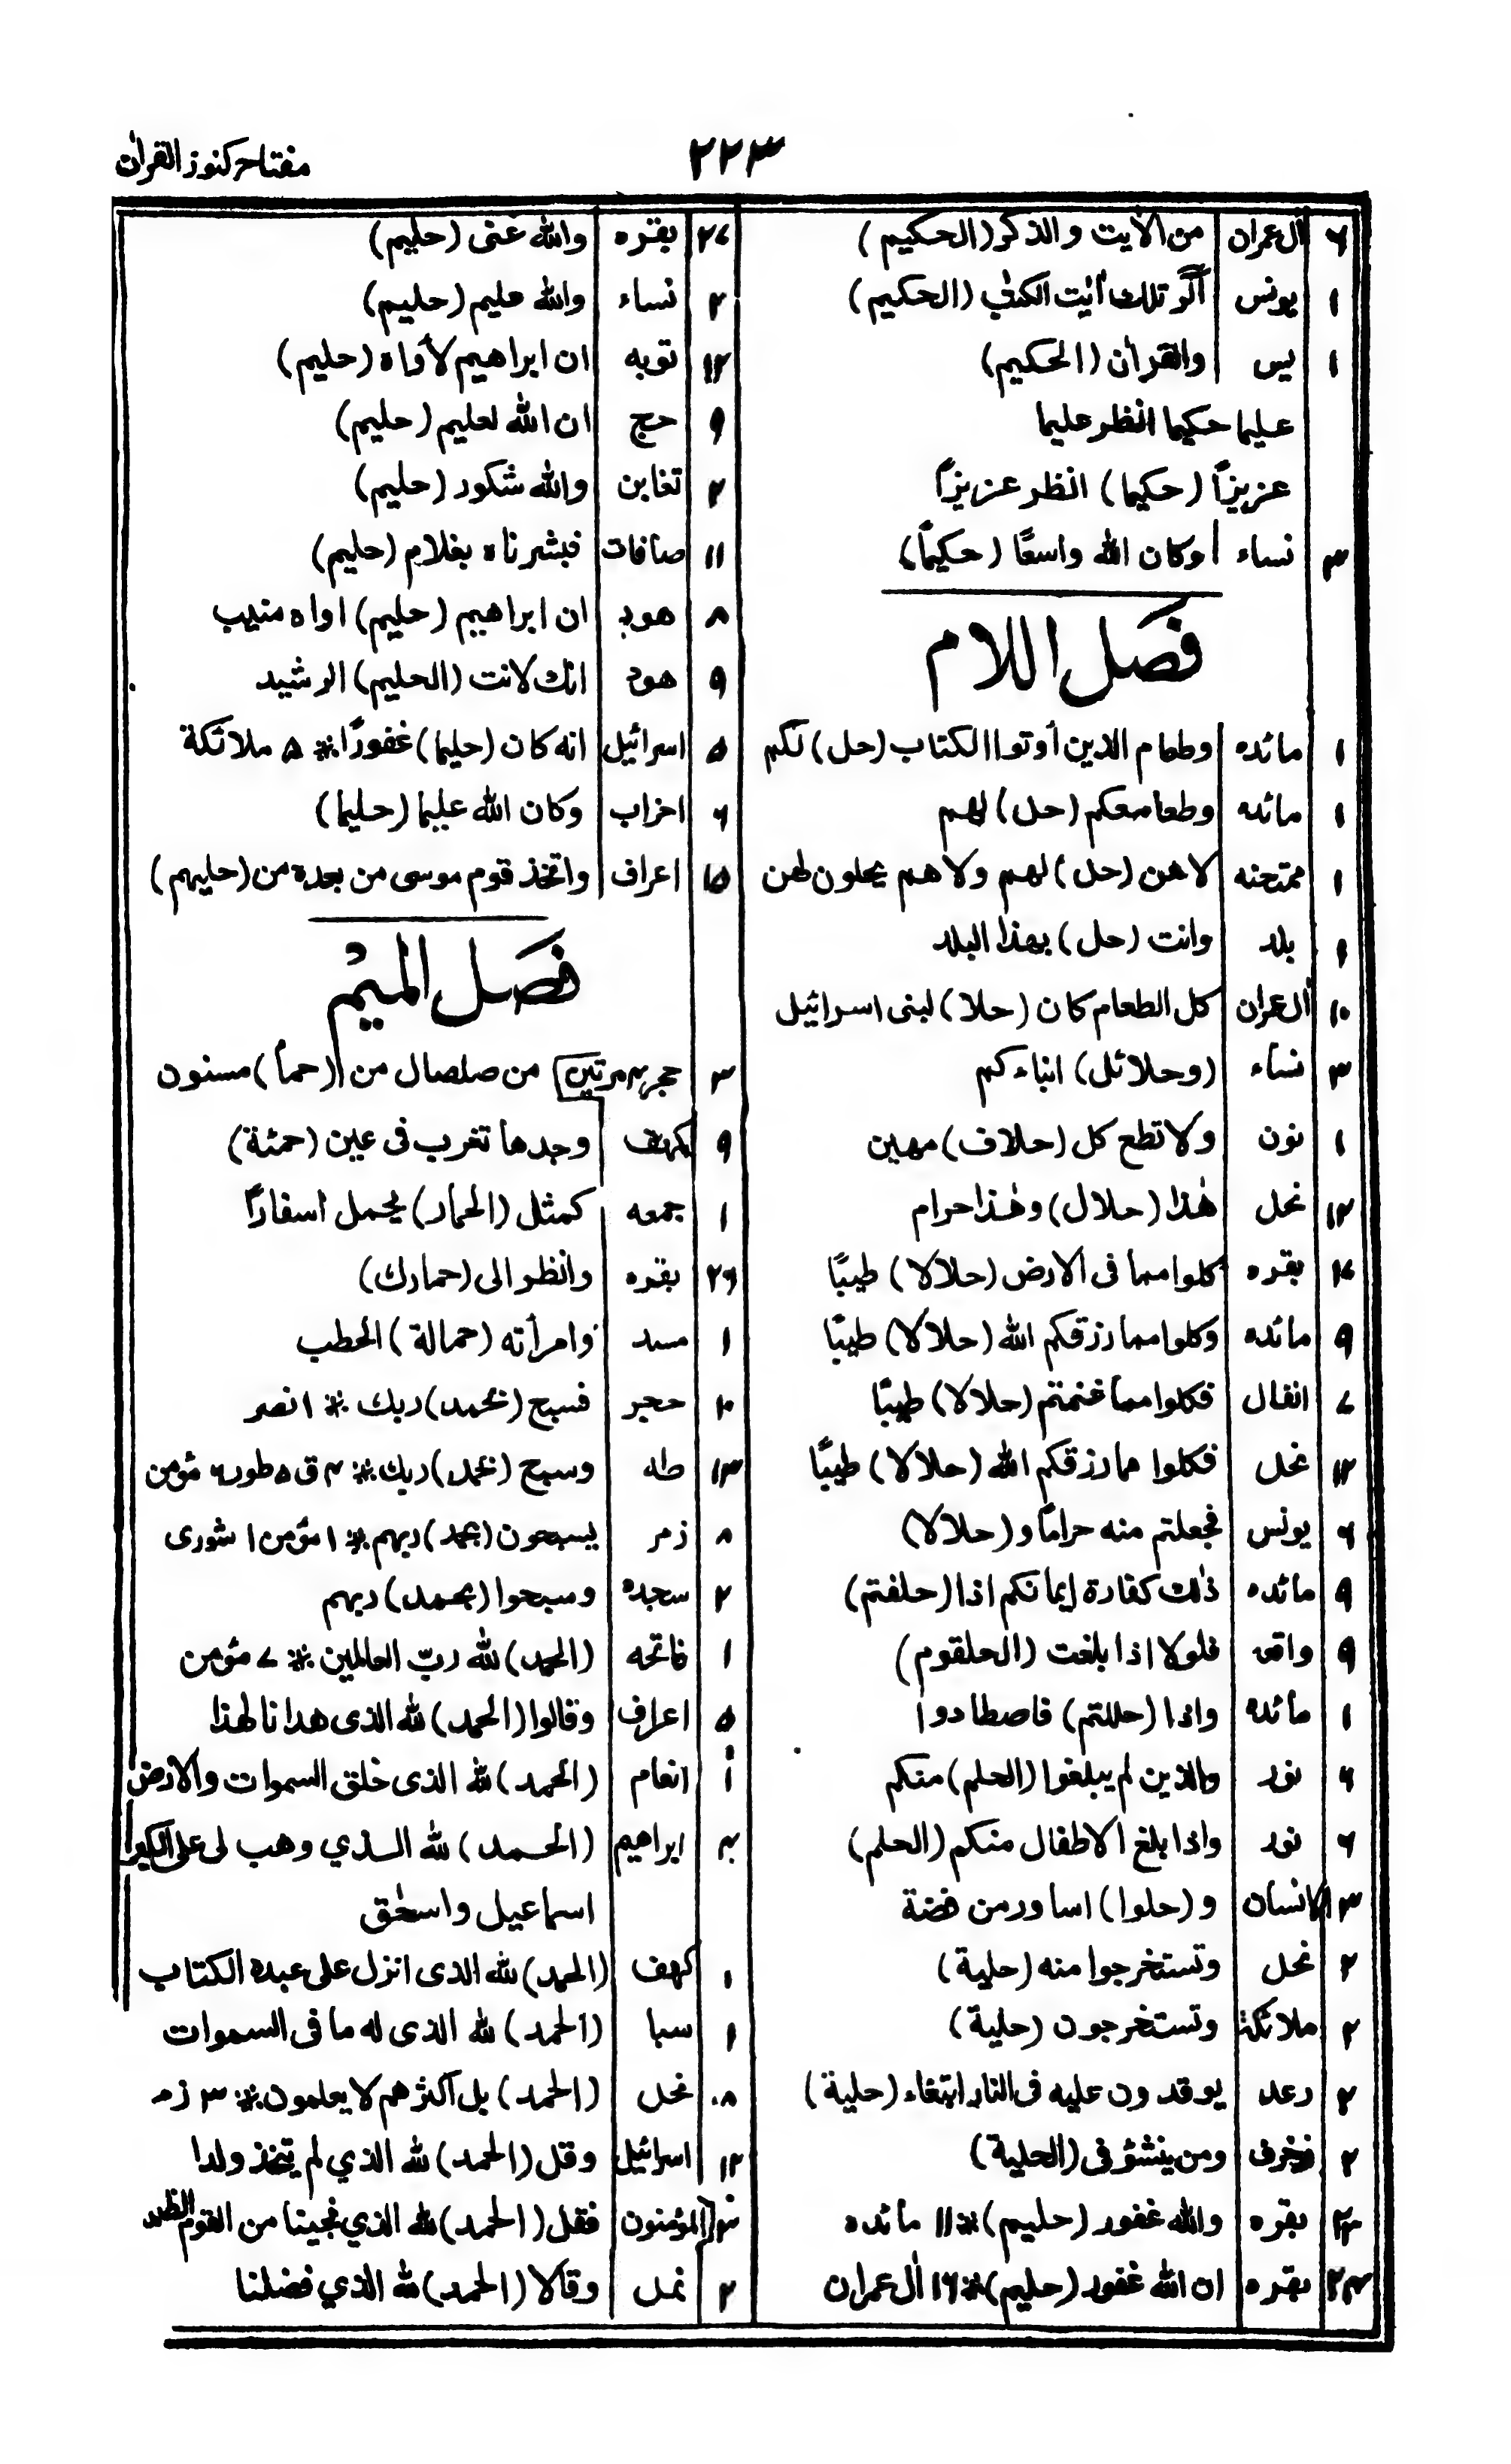 ٢٢٣
مفتاح كنوز القرآن
٦ آل عمران من الآيت والذكر (الحكيم)
١ يونس الر تلك اٰيٰت الكتٰب (الحكيم)
١ يس والقرآن (الحكيم)
عليما حكيما انظر عليما
عزيزًا (حكيما) انظر عزيزًا
٣ نساء وكان الله واسعًا (حكيماً)
فصل اللام
١ مائده وطعام الذين أوتوا الكتاب (حل) لكم
١ مائده وطعامعكم (حل) لهم
١ ممتحنه لاهن (حل) لهم ولا هم يحلون لهن
١ بلد وانت (حل) بهذا البلد
١٠ آل عمران كل الطعام كان (حلا) لبنى اسرائيل
٣ نساء (وحلائل) ابناءكم
١ نون ولا تطع كل (حلاف) مهين
١٢ نحل هٰذا (حلال) وهٰذا حرام
بقره كلوا مما فى الارض (حلالا) طيبًا
٩ مائده وكلوا مما رزقكم الله (حلالا) طيبًا
٧ انفال فكلوا مما غنمتم (حلالا) طيبًا
١٢ نحل فكلوا مما رزقكم الله (حلالا) طيبًا
٦ يونس فجعلتم منه حراماً و (حلالا)
٩ مائده ذٰلك كفارة ايمانكم اذا (حلفتم)
٩ واقعه فلولا اذا بلغت (الحلقوم)
١ مائده واذا (حللتم) فاصطادوا
٦ نور والذين لم يبلغوا (الحلم) منكم
٦ نور واذا بلغ الاطفال منكم (الحلم)
٣ الانسان و (حلوا) اساور من فضة
٢ نحل وتستخرجوا منه (حلية)
٢ ملائكة وتستخرجون (حلية)
٢ رعد يوقدون عليه فى النار ابتغاء (حلية)
٢ زخرف ومن ينشؤ فى (الحلية)
بقره والله غفور (حليم) ※ ١١ مائده
بقره ان الله غفور (حليم) ※ ١٦ اٰل عمران
بقره والله غنى (حليم)
٢ نساء والله عليم (حليم)
توبه ان ابراهيم لأواه (حليم)
٩ حج ان الله لعليم (حليم)
٢ تغابن والله شكور (حليم)
١١ صافات فبشرناه بغلام (حليم)
٨ هود ان ابراهيم (حليم) اواه منيب
٩ هود انك لانت (الحليم) الرشيد
٥ اسرائيل انه كان (حليما) غفورًا ※ ٥ ملائكة
٦ احزاب وكان الله عليما (حليما)
اعراف واتخذ قوم موسى من بعده من (حليهم)
فصل الميم
٣ حجر ٣ مرتين من صلصال من (حمأ) مسنون
٩ كهف وجدها تغرب فى عين (حمئة)
١ جمعه كمثل (الحمار) يحمل اسفارًا
بقره وانظر الى (حمارك)
١ مسد وامرأته (حمالة) الحطب
حجر فسبح (بحمد) ربك ※ ١ نصر
طه وسبح (بحمد) ربك ※ ٣ ق ٥ طور ٦ مؤمن
٨ زمر يسبحون (بحمد) ربهم ※ ١ مؤمن ١ شورى
٢ سجده وسبحوا (بحمد) ربهم
١ فاتحه (الحمد) لله ربّ العالمين ※ ٧ مؤمن
٥ اعراف وقالوا (الحمد) لله الذى هدانا لهذا
١ انعام (الحمد) لله الذى خلق السموات والارض
ابراهيم (الحمد) لله الذي وهب لى على الكبر
اسماعيل واسحٰق
١ كهف (الحمد) لله الذى انزل على عبده الكتاب
١ سبا (الحمد) لله الذى له ما فى السموات
٨ نحل (الحمد) بل اكثرهم لا يعلمون ※ ٣ زمر
١٢ اسرائيل وقل (الحمد) لله الذي لم يتخذ ولدا
المؤمنون فقل (الحمد) لله الذي نجينا من القوم
٢ نمل وقالا (الحمد) لله الذي فضلنا